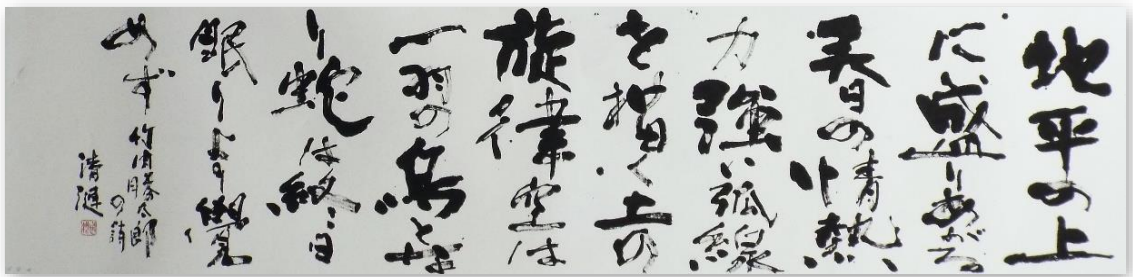 地平の上
に盛りあがる
春日の情熱
力強い弧線
を描く土の
旋律空は
一羽の鳥とな
り蛇は終日
眠りより覺
めず
竹内勝太郎
の詩